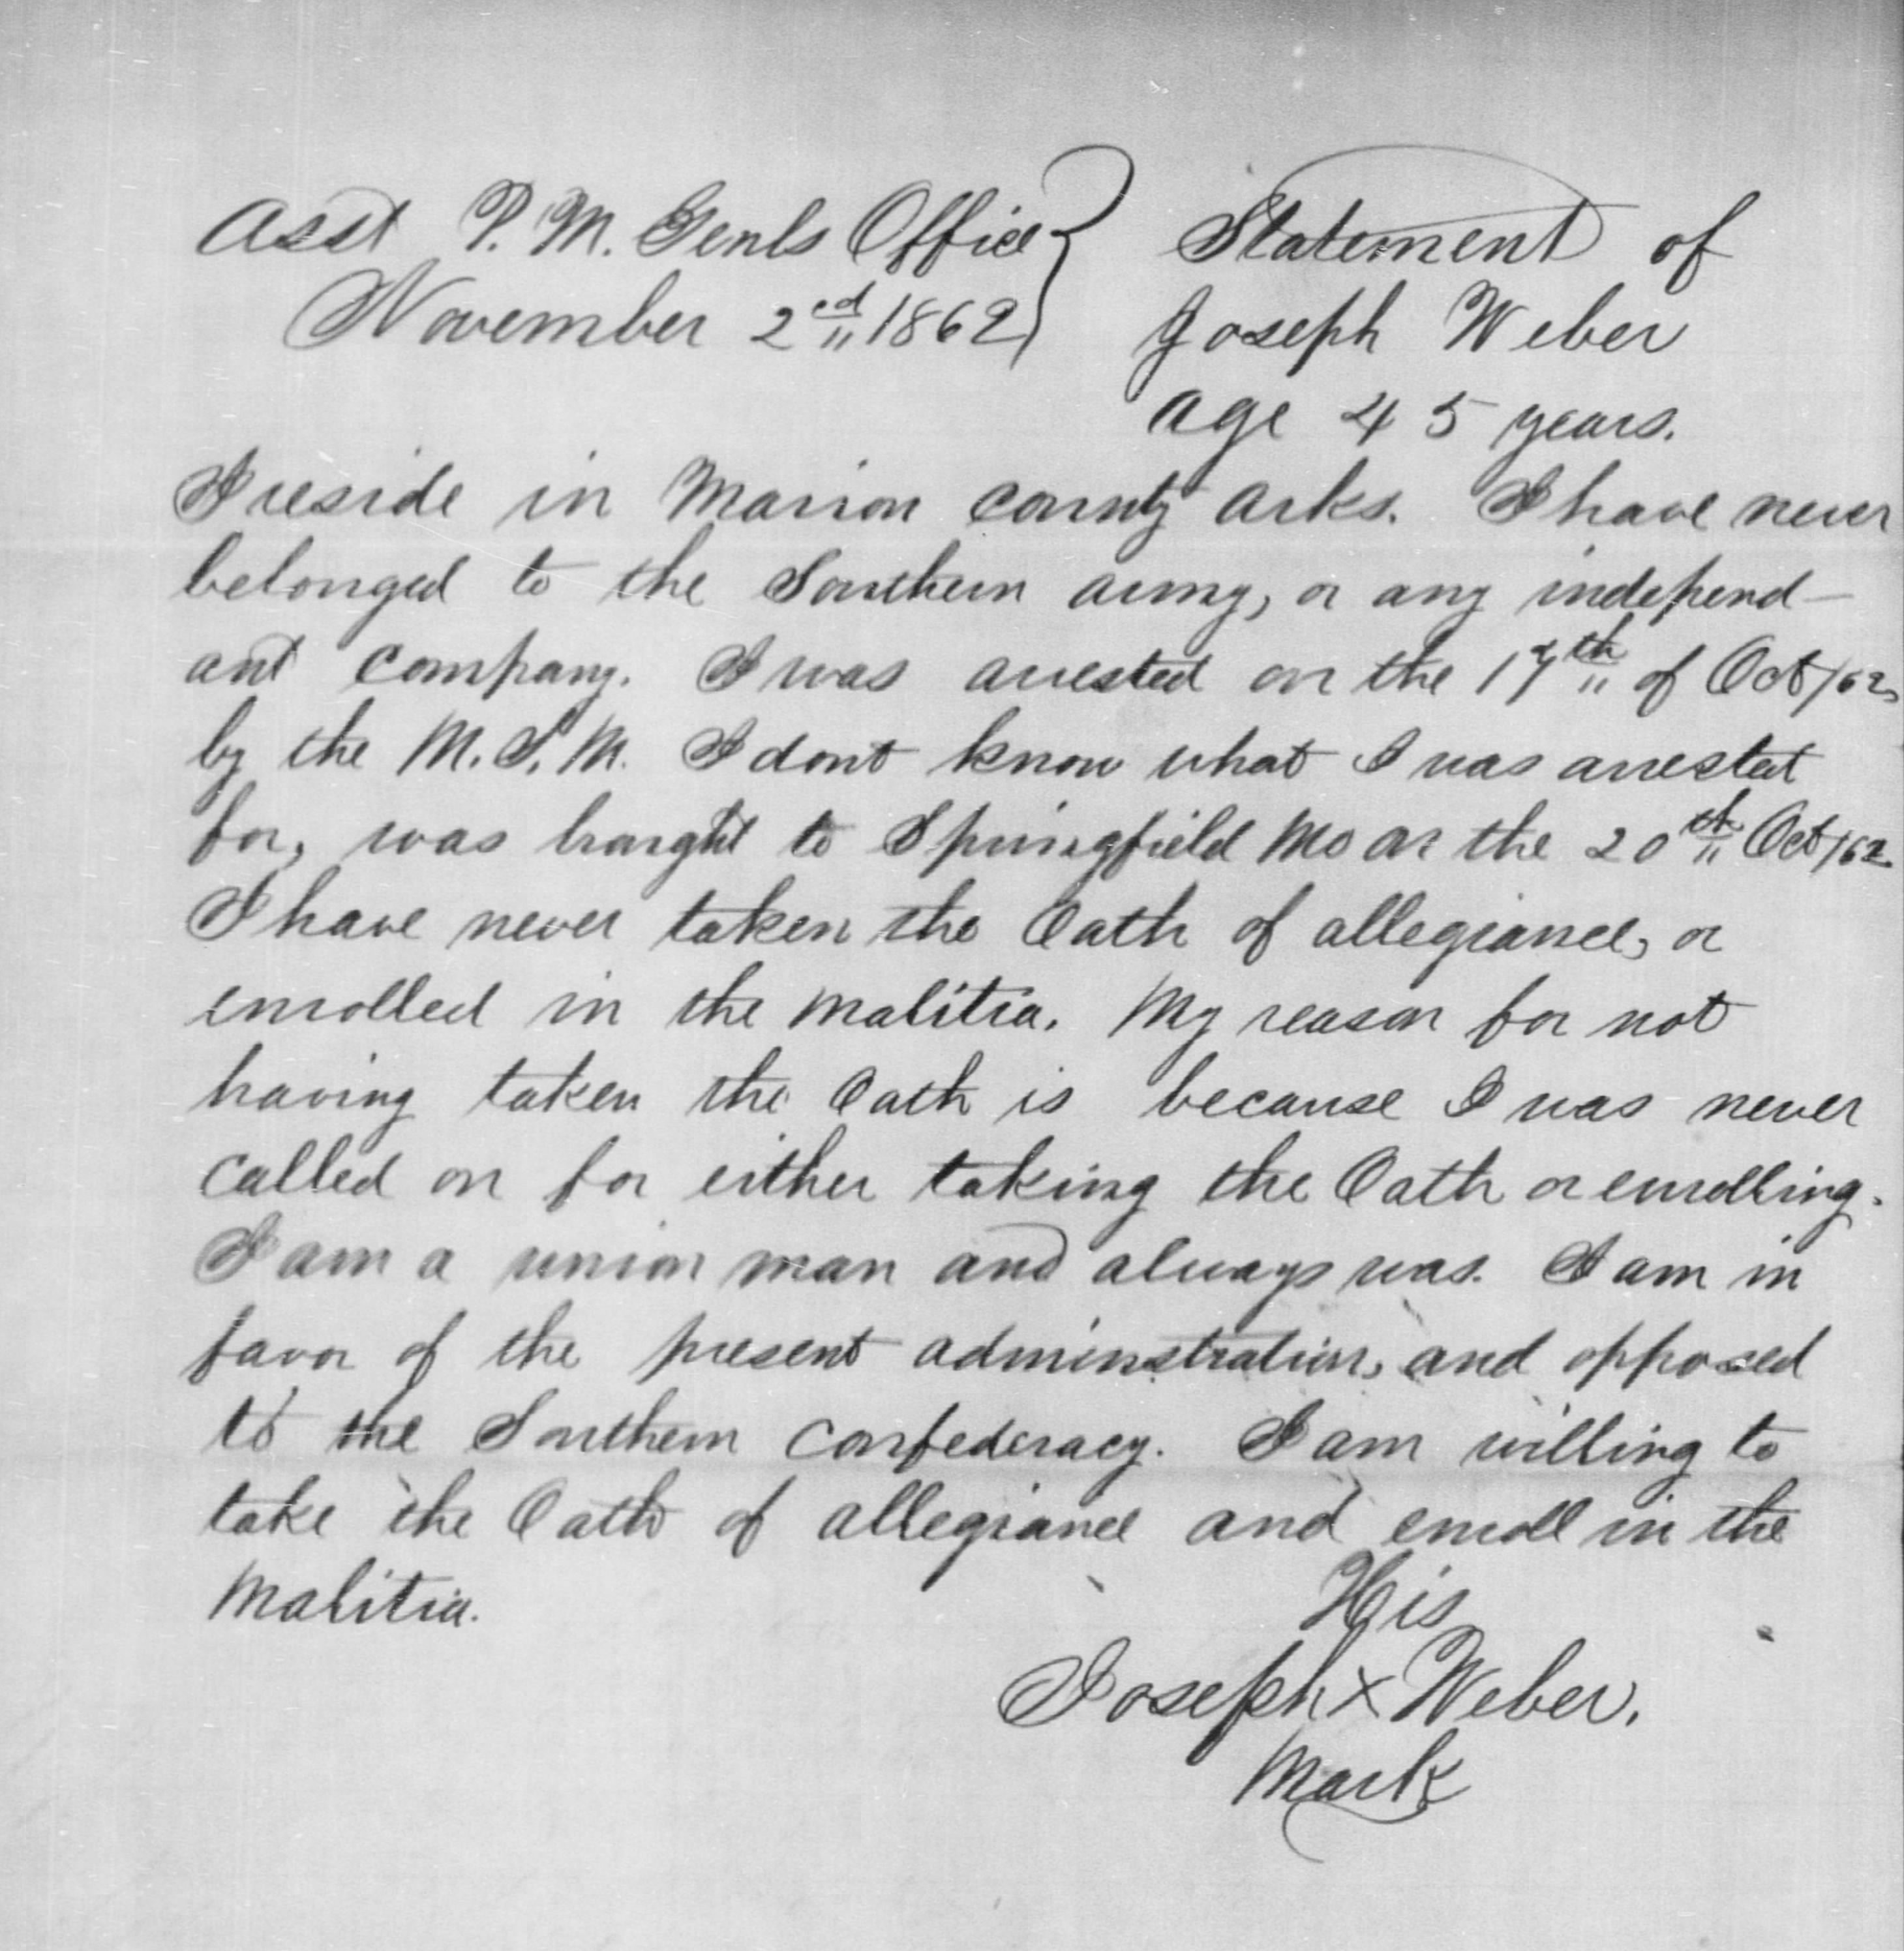 Asst P. M. Genls Office } Statement of
November 2ed 1862 } Joseph Weber
age 45 years.
I reside in Marion County Arks. I have never
belonged to the Southern army, or any independ-
ant company. I was arrested on the 17th of Oct/62,
by the M. S. M. I dont know what I was arrested
for, was baught to Springfield Mo on the 20th Oct/62
I have never taken the Oath of allegiance, or
enrolled in the malitia. My reason for not
having taken the Oath is because I was never
called on for either taking the Oath or enrolling.
I am a union man and always was. I am in
favor of the present adminstration, and opposed
to the Southern Confederacy. I am willing to
take the Oath of allegiance and enroll in the
Malitia.
His
Joseph x Weber.
Mark